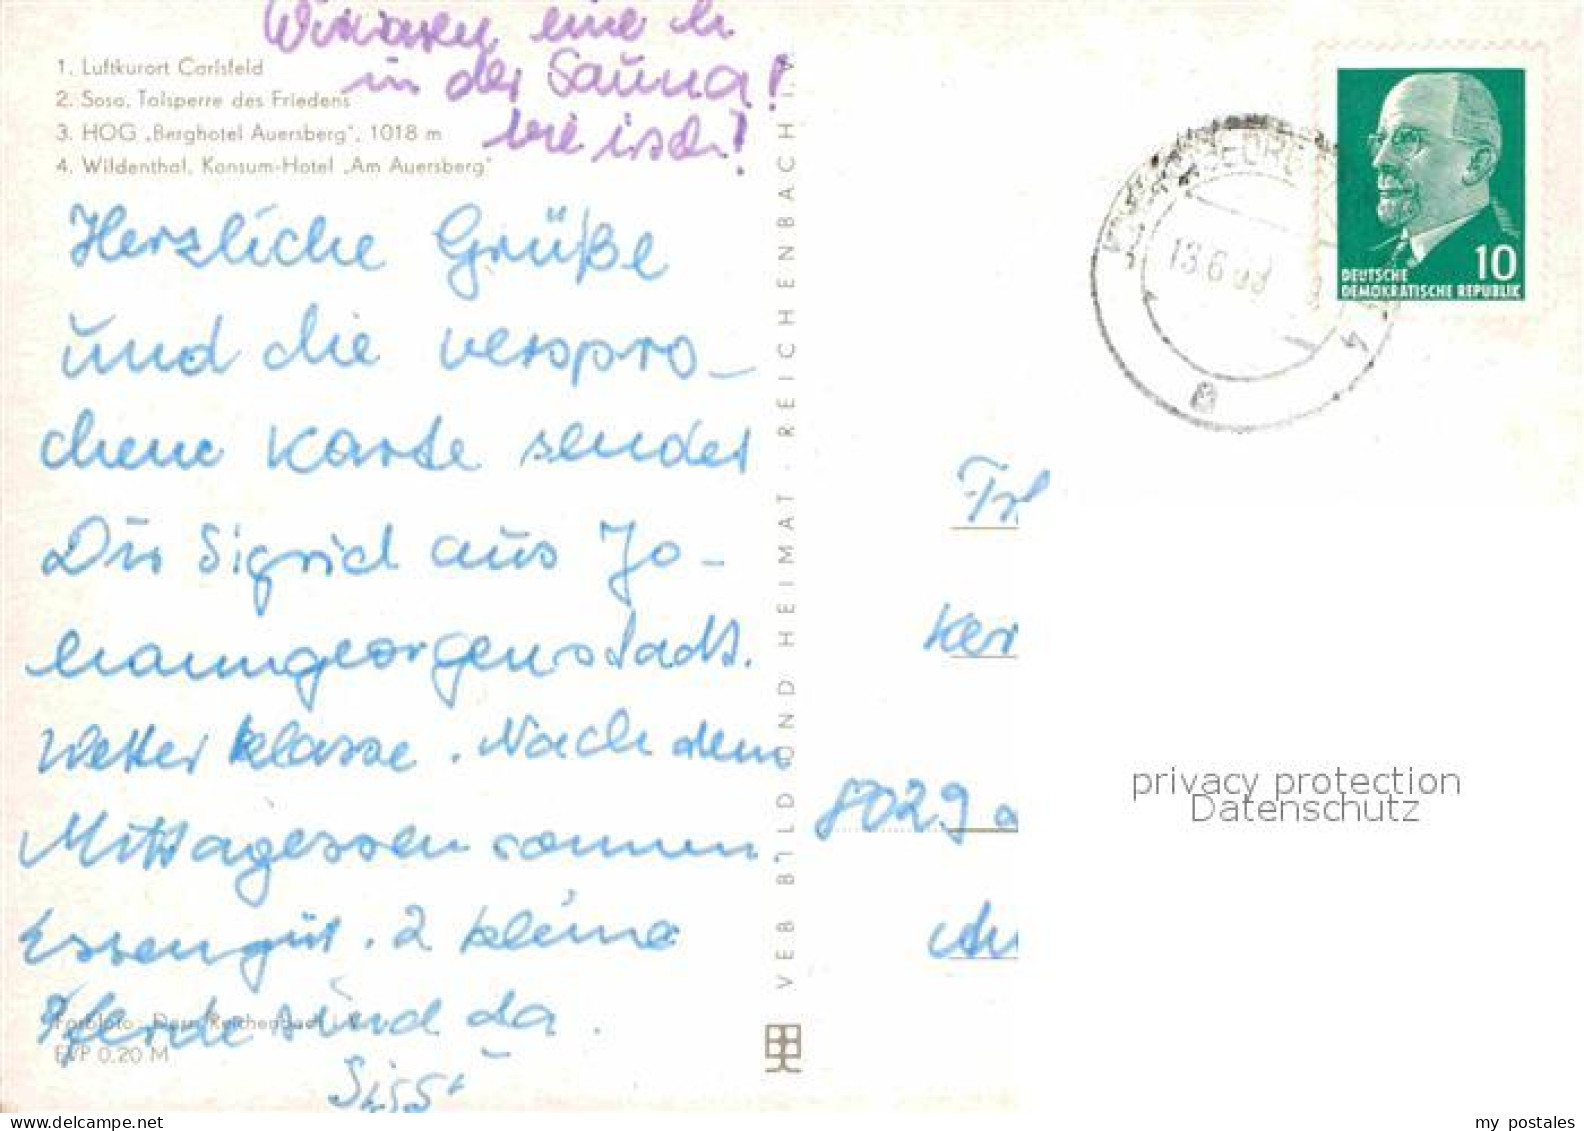 Wir waren eine h
in der Sauna!
1. Luftkurort Carlsfeld
2. Sosa, Talsperre des Friedens
3. HOG „Berghotel Auersberg", 1018 m
4. Wildenthal, Konsum-Hotel „Am Auersberg"
Herzliche Grüße
und die verspro-
chene Karte sendet
Dir Sigrid aus Jo-
hanngeorgenstadt.
Wetter klasse. Nach dem
Mittagessen sonnen.
Essen gut. 2 kleine
Pferde sind da.
Farbfoto: Darr, Reichenbach i. V.
EVP 0,20 M
VEB BILD UND HEIMAT · REICHENBACH I. V.
13.6.
10
DEUTSCHE
DEMOKRATISCHE REPUBLIK
Frl
Ker
8029
privacy protection
Datenschutz
my postales
www.delcampe.net